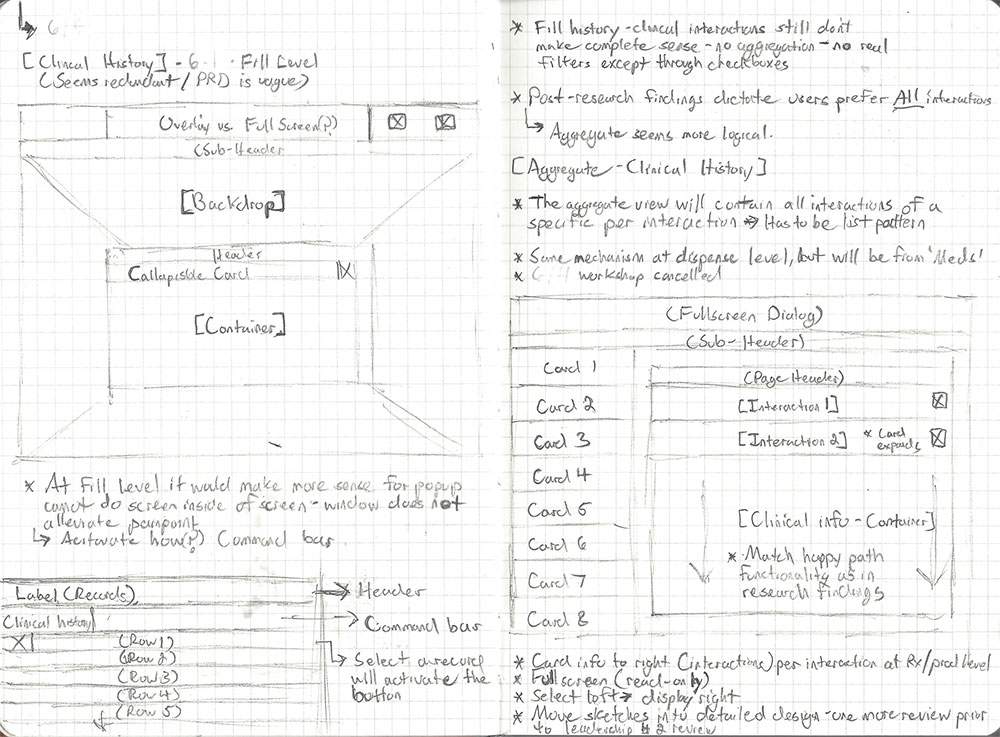 [Clinical History] - 6 · Fill Level
(Seems redundant / PRD is vague)
Overlay vs. Full Screen(?)
(Sub-Header
[Backdrop]
Header
Collapisble Card
[Container]
* At Fill Level it would make more sense for popup
cannot do screen inside of screen - window does not
alleviate painpoint
↳ Acitavate how(?) Command bar.
Label (Records)
Clinical history
(Row 1)
(Row 2)
(Row 3)
(Row 4)
(Row 5)
→ Header
→ Command bar
↳ Select a record
will activate the
button
* Fill history - clincal interactions still don't
make complete sense - no aggregation - no real
filters except through checkboxes
* Post-research findings dictate users prefer All interactions
↳ Aggregate seems more logical.
[Aggregate - Clinical History]
* The aggregate view will contain all interactions of a
specific per interaction → Has to be list pattern
* Same mechanism at dispense level, but will be from 'Meds'
* workshop cancelled
(Fullscreen Dialog)
(Sub-Header)
Card 1
Card 2
Card 3
Card 4
Card 5
Card 6
Card 7
Card 8
(Page Header)
[Interaction 1]
[Interaction 2] * Card
expands
[Clinical info - Container]
* Match happy path
functionality as in
research findings
* Card info to right (interactions) per interaction at Rx/prod level
* Fullscreen (read-only)
* Select left → display right
* Move sketches into detailed design - one more review prior
to leadership #2 review